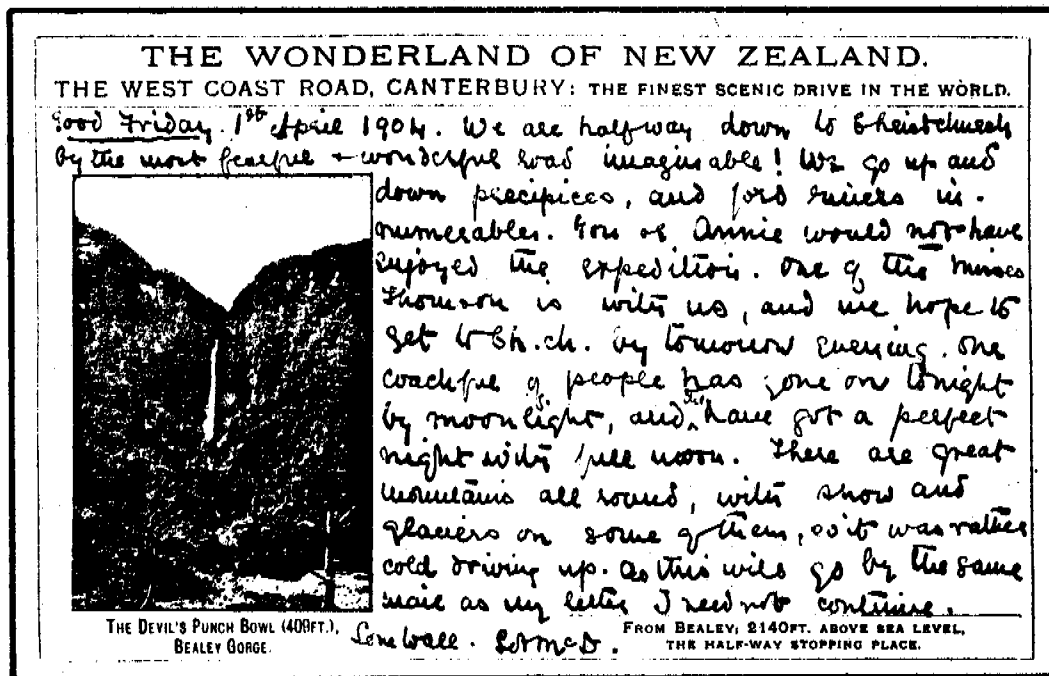 THE WONDERLAND OF NEW ZEALAND.
THE WEST COAST ROAD, CANTERBURY: THE FINEST SCENIC DRIVE IN THE WORLD.
Good Friday. 1st April 1904. We are halfway down to Christchurch
by the most fearful + wonderful road imaginable! We go up and
down precipices, and ford rivers in-
numerables. You or Annie would not have
enjoyed the expedition. One of the Misses
Thomson is with us, and we hope to
get to Ch.ch. by tomorrow evening. One
coachful of people has gone on tonight
by moonlight, and have got a perfect
night with full moon. There are great
mountains all round, with snow and
glaciers on some of them, so it was rather
cold driving up. As this will go by the same
mail as my letter I need not continue.
THE DEVIL'S PUNCH BOWL (409FT.),
BEALEY GORGE.
FROM BEALEY; 2140FT. ABOVE SEA LEVEL,
THE HALF-WAY STOPPING PLACE.